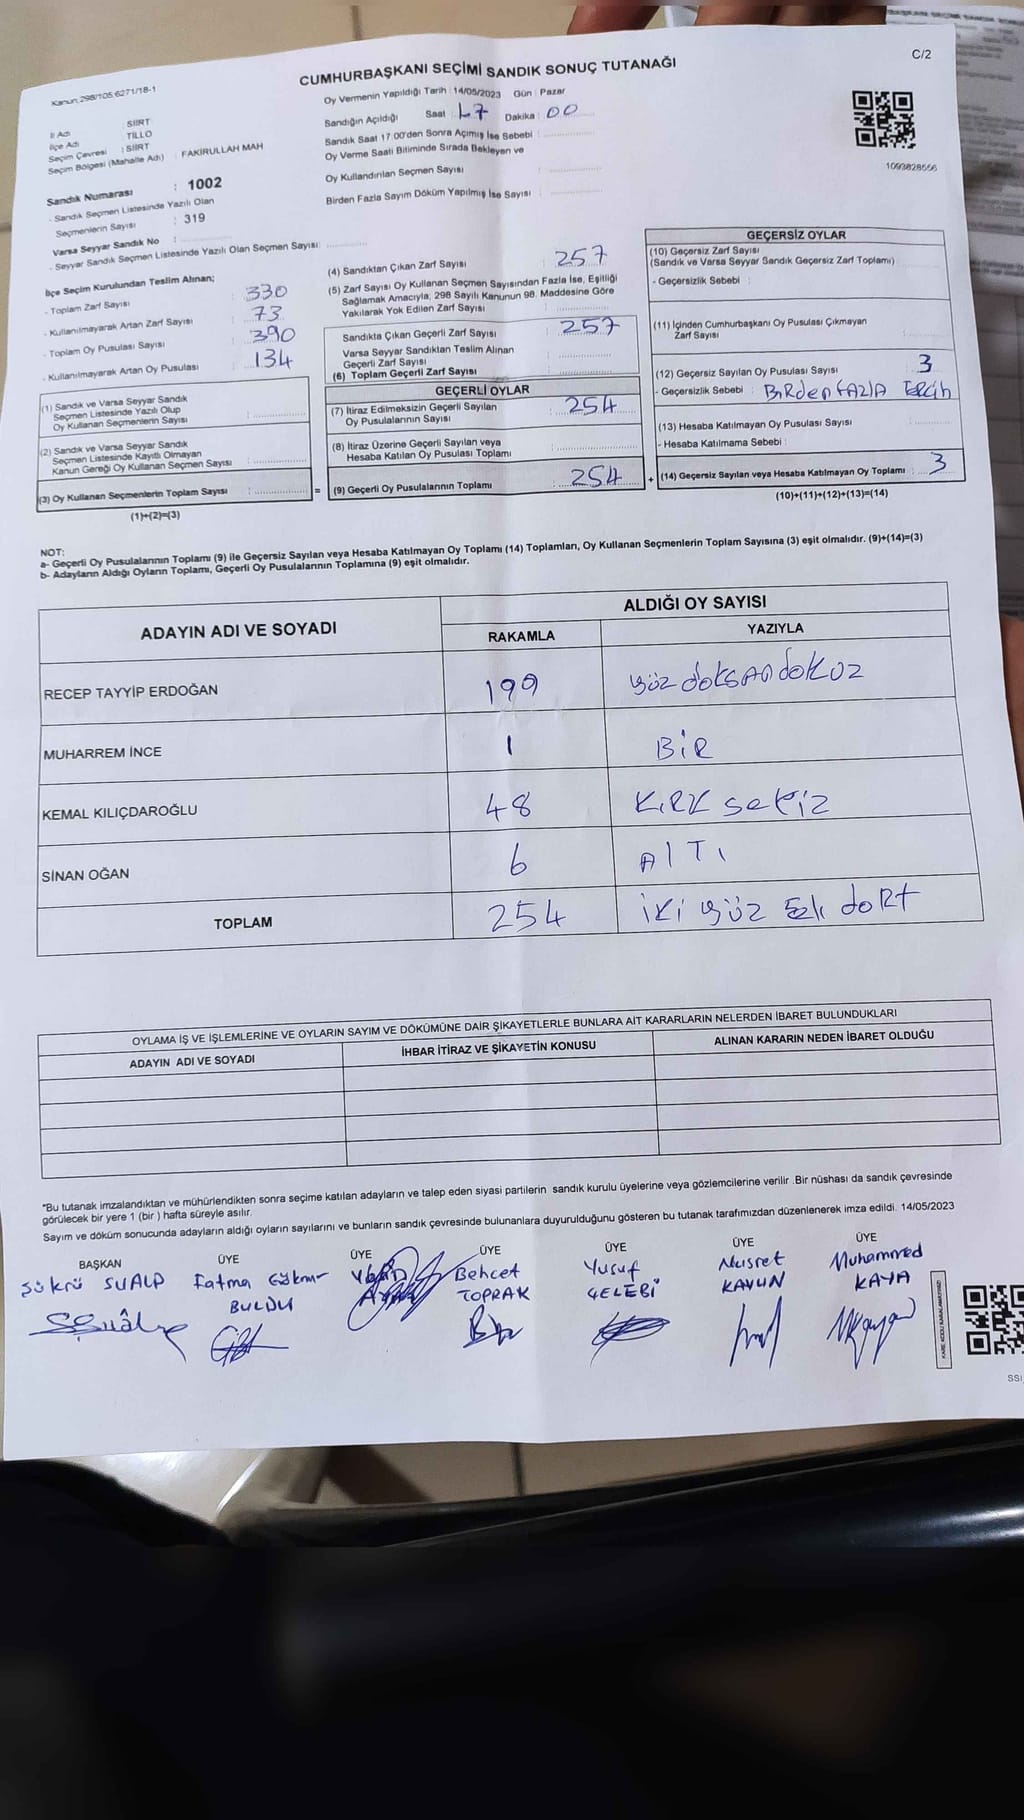 Kanun:298/105,6271/18-1
C/2
CUMHURBAŞKANI SEÇİMİ SANDIK SONUÇ TUTANAĞI
1093828556
İl Adı : SİİRT
İlçe Adı : TİLLO
Seçim Çevresi : SİİRT
Seçim Bölgesi (Mahalle Adı) : FAKİRULLAH MAH
Sandık Numarası : 1002
- Sandık Seçmen Listesinde Yazılı Olan
Seçmenlerin Sayısı : 319
Varsa Seyyar Sandık No :
- Seyyar Sandık Seçmen Listesinde Yazılı Olan Seçmen Sayısı:
Oy Vermenin Yapıldığı Tarih : 14/05/2023 Gün : Pazar
Sandığın Açıldığı Saat : 17 Dakika : 00
Sandık Saat 17.00'den Sonra Açımış İse Sebebi :
Oy Verme Saati Bitiminde Sırada Bekleyen ve
Oy Kullandırılan Seçmen Sayısı :
Birden Fazla Sayım Döküm Yapılmış İse Sayısı :
İlçe Seçim Kurulundan Teslim Alınan;
- Toplam Zarf Sayısı : 330
- Kullanılmayarak Artan Zarf Sayısı : 73
- Toplam Oy Pusulası Sayısı : 390
- Kullanılmayarak Artan Oy Pusulası : 134
(1) Sandık ve Varsa Seyyar Sandık
Seçmen Listesinde Yazılı Olup
Oy Kullanan Seçmenlerin Sayısı :
(2) Sandık ve Varsa Seyyar Sandık
Seçmen Listesinde Kayıtlı Olmayan
Kanun Gereği Oy Kullanan Seçmen Sayısı :
(3) Oy Kullanan Seçmenlerin Toplam Sayısı :
(1)+(2)=(3)
=
(4) Sandıktan Çıkan Zarf Sayısı : 257
(5) Zarf Sayısı Oy Kullanan Seçmen Sayısından Fazla İse, Eşitliği
Sağlamak Amacıyla; 298 Sayılı Kanunun 98. Maddesine Göre
Yakılarak Yok Edilen Zarf Sayısı :
Sandıkta Çıkan Geçerli Zarf Sayısı : 257
Varsa Seyyar Sandıktan Teslim Alınan
Geçerli Zarf Sayısı :
(6) Toplam Geçerli Zarf Sayısı :
GEÇERLİ OYLAR
(7) İtiraz Edilmeksizin Geçerli Sayılan
Oy Pusulalarının Sayısı : 254
(8) İtiraz Üzerine Geçerli Sayılan veya
Hesaba Katılan Oy Pusulası Toplamı :
(9) Geçerli Oy Pusulalarının Toplamı : 254
+
GEÇERSİZ OYLAR
(10) Geçersiz Zarf Sayısı
(Sandık ve Varsa Seyyar Sandık Geçersiz Zarf Toplamı) :
- Geçersizlik Sebebi :
(11) İçinden Cumhurbaşkanı Oy Pusulası Çıkmayan
Zarf Sayısı :
(12) Geçersiz Sayılan Oy Pusulası Sayısı : 3
- Geçersizlik Sebebi : BiRden FAZLA tercih
(13) Hesaba Katılmayan Oy Pusulası Sayısı :
- Hesaba Katılmama Sebebi :
(14) Geçersiz Sayılan veya Hesaba Katılmayan Oy Toplamı : 3
(10)+(11)+(12)+(13)=(14)
NOT:
a- Geçerli Oy Pusulalarının Toplamı (9) ile Geçersiz Sayılan veya Hesaba Katılmayan Oy Toplamı (14) Toplamları, Oy Kullanan Seçmenlerin Toplam Sayısına (3) eşit olmalıdır. (9)+(14)=(3)
b- Adayların Aldığı Oyların Toplamı, Geçerli Oy Pusulalarının Toplamına (9) eşit olmalıdır.
ADAYIN ADI VE SOYADI
ALDIĞI OY SAYISI
RAKAMLA YAZIYLA
RECEP TAYYİP ERDOĞAN 199 yüz doksan dokuz
MUHARREM İNCE 1 BİR
KEMAL KILIÇDAROĞLU 48 KIRK sekiz
SİNAN OĞAN 6 AlTı
TOPLAM 254 iki yüz Elli dört
OYLAMA İŞ VE İŞLEMLERİNE VE OYLARIN SAYIM VE DÖKÜMÜNE DAİR ŞİKAYETLERLE BUNLARA AİT KARARLARIN NELERDEN İBARET BULUNDUKLARI
ADAYIN ADI VE SOYADI İHBAR İTİRAZ VE ŞİKAYETİN KONUSU ALINAN KARARIN NEDEN İBARET OLDUĞU
*Bu tutanak imzalandıktan ve mühürlendikten sonra seçime katılan adayların ve talep eden siyasi partilerin sandık kurulu üyelerine veya gözlemcilerine verilir .Bir nüshası da sandık çevresinde
görülecek bir yere 1 (bir ) hafta süreyle asılır.
Sayım ve döküm sonucunda adayların aldığı oyların sayılarını ve bunların sandık çevresinde bulunanlara duyurulduğunu gösteren bu tutanak tarafımızdan düzenlenerek imza edildi. 14/05/2023
BAŞKAN ÜYE ÜYE ÜYE ÜYE ÜYE ÜYE
Şükrü SUALP
Fatma Göknur
BULDU
Behcet
TOPRAK
Yusuf
ÇELEBİ
Nusret
KAVUN
Muhammed
KAYA
SSİ